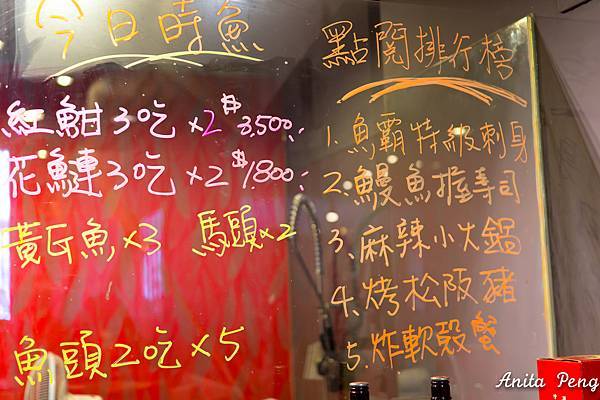 今日時魚
紅魽3吃x2 $3,500.
花鰱3吃x2 $1,800.
黃后魚x3 馬頭x2
魚頭2吃x5
點閱排行榜
1.魚霸特級刺身
2.鰻魚握壽司
3.麻辣小火鍋
4.烤松阪豬
5.炸軟殼蟹
Anita Peng